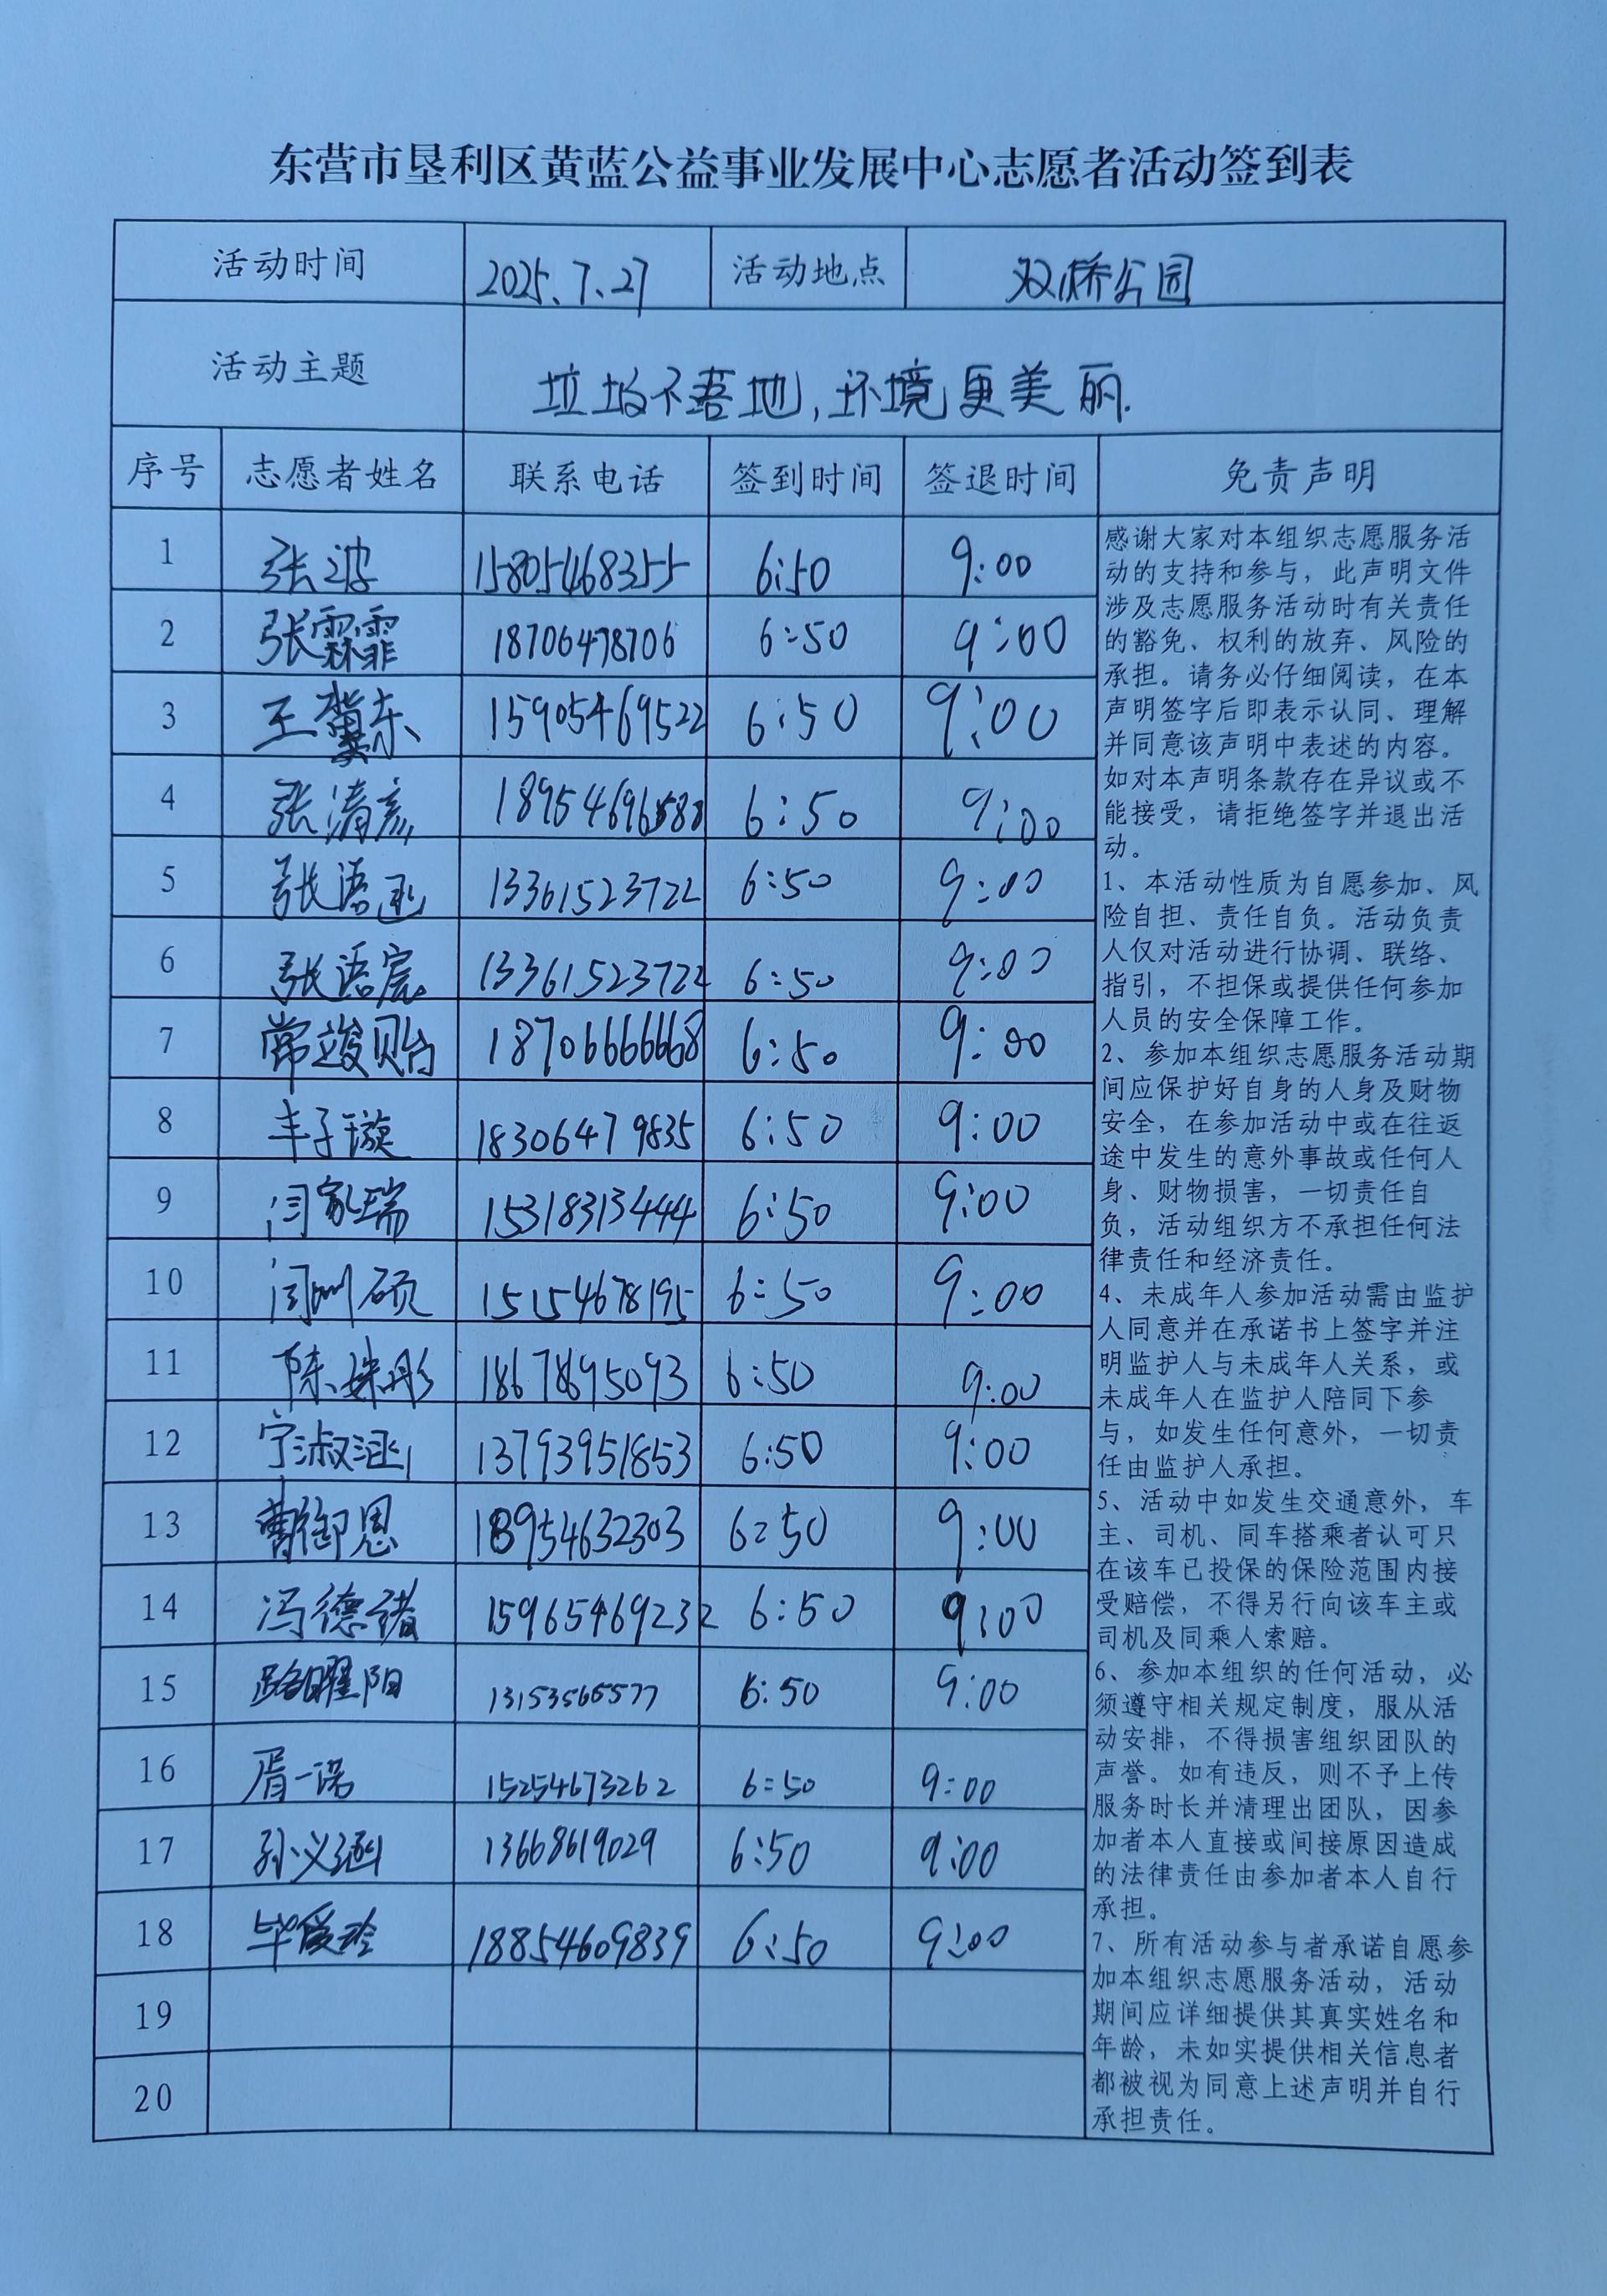 东营市垦利区黄蓝公益事业发展中心志愿者活动签到表
活动时间 2025.7.27 活动地点 双桥公园
活动主题 垃圾不落地,环境更美丽.
序号 志愿者姓名 联系电话 签到时间 签退时间 免责声明
1 张波 15805468355 6:50 9:00
2 张霖霏 18706478706 6:50 9:00
3 王冀东 15905469522 6:50 9:00
4 张清彦 6:50 9:00
5 张语函 13361523722 6:50 9:00
6 张语宸 13361523722 6:50 9:00
7 常竣贻 18706666668 6:50 9:00
8 丰子璇 18306479835 6:50 9:00
9 闫家瑞 15318313444 6:50 9:00
10 闫硕 15154678195 6:50 9:00
11 陈姝彤 18678695093 6:50 9:00
12 宁淑涵 13793951853 6:50 9:00
13 曹御恩 18954632303 6:50 9:00
14 冯德诸 15965469232 6:50 9:00
15 路曜阳 13153566577 6:50 9:00
16 胥一诺 15254673262 6:50 9:00
17 孙义涵 13668619029 6:50 9:00
18 毕爱玲 18854609839 6:50 9:00
19
20
感谢大家对本组织志愿服务活
动的支持和参与，此声明文件
涉及志愿服务活动时有关责任
的豁免、权利的放弃、风险的
承担。请务必仔细阅读，在本
声明签字后即表示认同、理解
并同意该声明中表述的内容。
如对本声明条款存在异议或不
能接受，请拒绝签字并退出活
动。
1、本活动性质为自愿参加、风
险自担、责任自负。活动负责
人仅对活动进行协调、联络、
指引，不担保或提供任何参加
人员的安全保障工作。
2、参加本组织志愿服务活动期
间应保护好自身的人身及财物
安全，在参加活动中或在往返
途中发生的意外事故或任何人
身、财物损害，一切责任自
负，活动组织方不承担任何法
律责任和经济责任。
4、未成年人参加活动需由监护
人同意并在承诺书上签字并注
明监护人与未成年人关系，或
未成年人在监护人陪同下参
与，如发生任何意外，一切责
任由监护人承担。
5、活动中如发生交通意外，车
主、司机、同车搭乘者认可只
在该车已投保的保险范围内接
受赔偿，不得另行向该车主或
司机及同乘人索赔。
6、参加本组织的任何活动，必
须遵守相关规定制度，服从活
动安排，不得损害组织团队的
声誉。如有违反，则不予上传
服务时长并清理出团队，因参
加者本人直接或间接原因造成
的法律责任由参加者本人自行
承担。
7、所有活动参与者承诺自愿参
加本组织志愿服务活动，活动
期间应详细提供其真实姓名和
年龄，未如实提供相关信息者
都被视为同意上述声明并自行
承担责任。